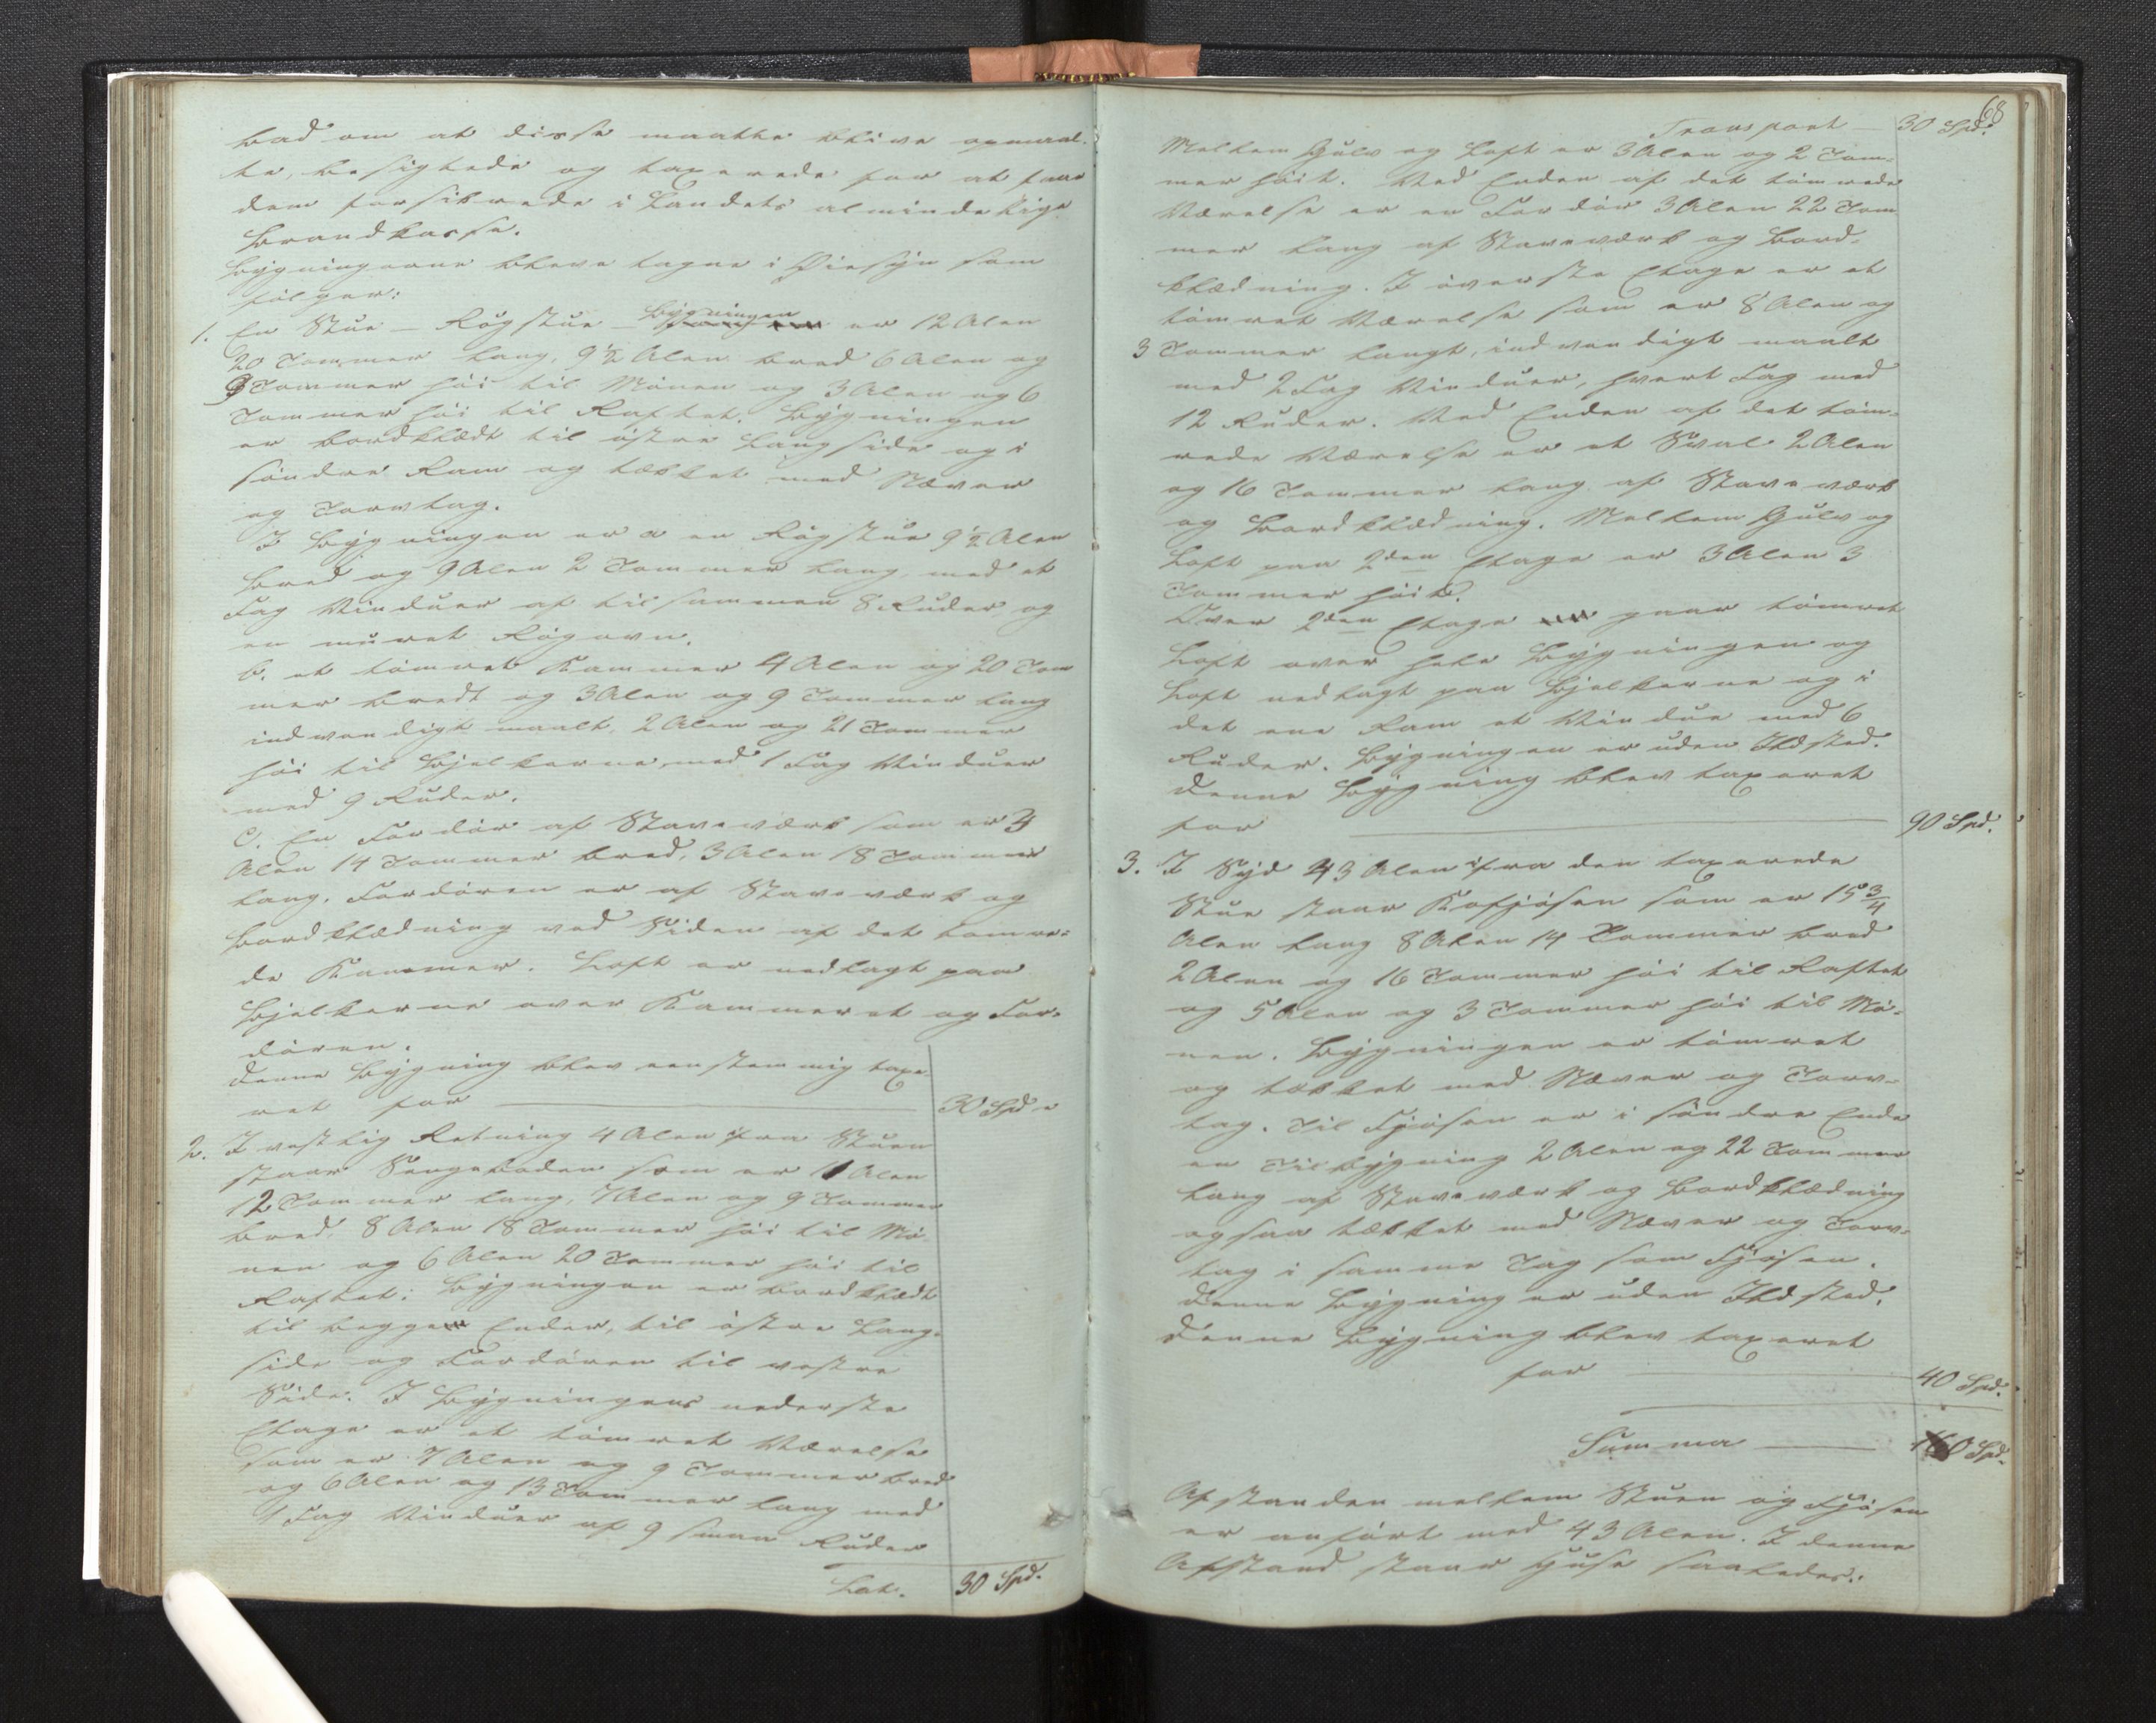 bad om at disse maatte blive opmaal-
te, besigtede og taxerede for at faae
dem forsikrede i Landets almindelige
Brandkasse.
Bygningerne bleve tagne i Øiesyn som
følger:
1. En Stue – Røgstue – Bygningen er 12 Alen
20 Tommer lang, 9 1/2 Alen bred 6 Alen og
9 Tommer høi til Mønen og 3 Alen og 6
Tommer høi til Raftet. Bygningen
er bordklædt til østre Langside og i
søndre Ram og tækket med Næver
og Torvtag.
I Bygningen er a en Røgstue 9 1/2 Alen
bred og 9 Alen 2 Tommer lang, med et
Fag Vinduer af tilsammen 8 Ruder og
en muret Røgovn.
b. et tømret Kammer 4 Alen og 20 Tom
mer bredt og 3 Alen og 9 Tommer lang
indvendigt maalt, 2 Alen og 21 Tommer
høi til Bjelkerne, med 1 Fag Vinduer
med 9 Ruder.
C. En Fordør af Staveværk som er 3
Alen 14 Tommer bred, 3 Alen 18 Tommer
lang. Fordøren er af Staveværk og
Bordklædning ved Siden af det tømre-
de Kammer. Loft er nedlagt paa
Bjelkerne over Kammeret og For-
døren.
Denne Bygning blev eenstemmig taxe-
ret for 30 Spd
2. I vestlig Retning 4 Alen fra Stuen
staar Sengeboden som er 11 Alen
12 Tommer lang, 7 Alen og 9 Tommer
bred, 8 Alen 18 Tommer høi til Mø-
nen og 6 Alen 20 Tommer høi til
Raftet. Bygningen er bordklædt
til begge Ender, til østre Lang-
side og Fordøren til vestre
Side. I Bygningens nederste
Etage er et tømret Værelse
som er 7 Alen og 9 Tommer bred
og 6 Alen og 13 Tommer lang med
1 Fag Vinduer af 9 smaa Ruder
Lat. 30 Spd.
68
Transport – 30 Spd.
Mellem Gulv og Loft er 3 Alen og 2 Tom-
mer høit. Ved Enden af det tømrede
Værelse er en Fordør 3 Alen 22 Tom
mer lang af Staveværk og Bord-
klædning. I øverste Etage er et
tømret Værelse som er 8 Alen og
3 Tommer langt, indvendigt maalt
med 2 Fag Vinduer, hvert Fag med
12 Ruder. Ved Enden af det tøm-
rede Værelse er et Sval 2 Alen
og 16 Tommer lang af Staveværk
og Bordklædning. Mellem Gulv og
Loft paa 2den Etage er 3 Alen 3
Tommer høit.
Over 2den Etage gaar tømret
Loft over hele Bygningen og
Loft nedlagt paa Bjelkerne og i
det ene Ram et Vindue med 6
Ruder. Bygningen er uden Ildsted.
Denne Bygning blev taxeret
for 90 Spd.
3. I Syd 43 Alen fra den taxerede
Stue staar Kofjøsen som er 15 3/4
Alen lang 8 Alen 14 Tommer bred
2 Alen og 16 Tommer høi til Raftet
og 5 Alen og 3 Tommer høi til Mø-
nen. Bygningen er tømret
og tækket med Næver og Torv-
tag. Til Fjøsen er i søndre Ende
en Tilbygning 2 Alen og 22 Tommer
lang af Staveværk og Bordklædning
ogsaa tækket med Næver og Torv-
tag i samme Tag som Fjøsen.
Denne Bygning er uden Ildsted.
Denne Bygning blev taxeret
for 40 Spd.
Summa 160 Spd.
Afstanden mellem Stuen og Fjøsen
er anført med 43 Alen. I denne
Afstand staar Huse saaledes: